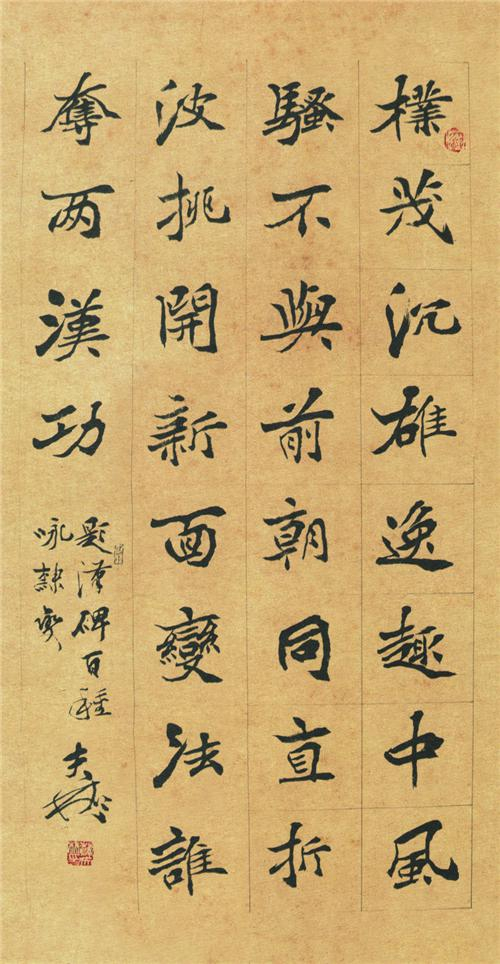 樸茂沉雄逸趣中風
騷不與前朝同直折
波挑開新面變法誰
奪两漢功
題漢碑百種
咏隸變